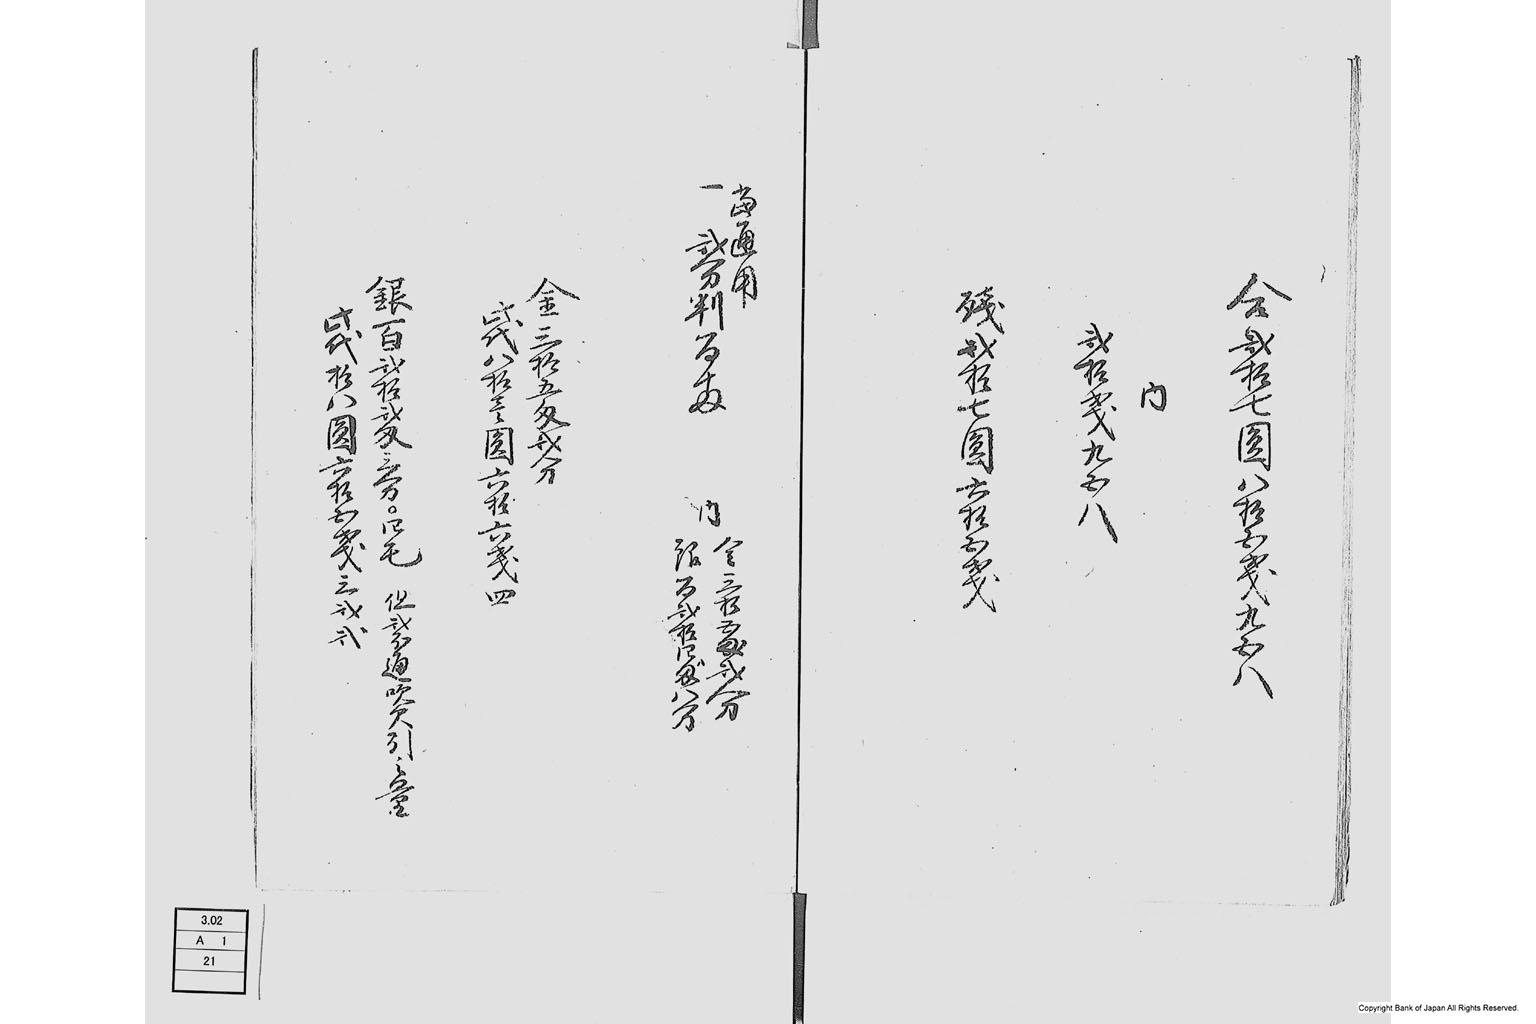 合弐拾七圓八拾五銭九五八
内
弐拾銭九五八
残弐拾七圓六拾五銭
當通用
一 弐分判百両
内 金三拾五匁弐分
銀百弐拾四匁八分
金三拾五匁弐分
此代八拾三圓六拾六銭四
銀百弐拾弐匁三分〇四毛 但弐分通吹欠引之量
此代拾八圓六拾五銭三弐弐
3.02
A 1
21
Copyright Bank of Japan All Rights Reserved.